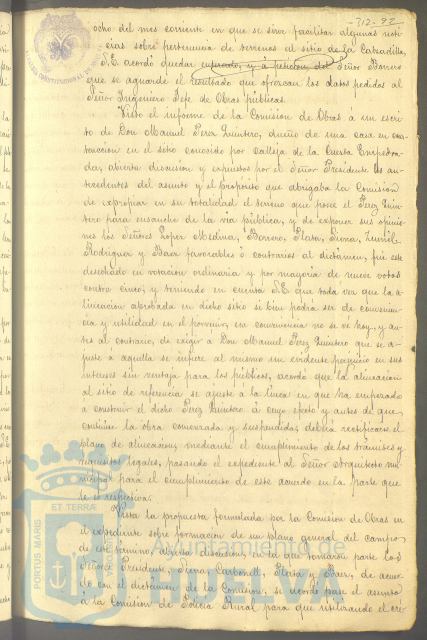 312-92
ocho del mes corriente en que se sirve facilitar algunas noti-
cias sobre pertenencia de terrenos al sitio de La Calzadilla,
S.E. acordó quedar enterado, y á petición del Señor Borrero
que se aguarde el resultado que ofrezcan los datos pedidos al
Señor Ingeniero Jefe de Obras públicas.
Visto el informe de la Comisión de Obras á un escri-
to de Don Manuel Perez Quintero, dueño de una casa en cons-
trucción en el sitio conocido por Calleja de la Cuesta Empedra-
da, abierta discusión y expuestos por el Señor Presidente los an-
tecedentes del asunto y el propósito que abrigaba la Comisión
de expropiar en su totalidad el terreno que posee el Perez Quin-
tero para ensanche de la via pública, y de exponer sus opinio-
nes los Señores Lopez Medina, Borrero, Plata, Sierra,
Rodriguez y Baez favorables ó contrarios al dictámen, fué este
desechado en votación ordinaria y por mayoria de nueve votos
contra cinco, y teniendo en cuenta S.E. que toda vez que la a-
lineación aprobada en dicho sitio si bien podrá ser de convenien-
cia y utilidad en el porvenir, su conveniencia no se vé hoy, y an-
tes al contrario, de exigir á Don Manuel Perez Quintero que se a-
juste á aquella se infiere al mismo un evidente perjuicio en sus
intereses sin ventaja para los públicos, acordó que la alineación
al sitio de referencia se ajuste á la linea en que ha empezado
á construir el dicho Perez Quintero á cuyo efecto y antes de que
continúe la obra comenzada y suspendida, deberá rectificarse el
plano de alineación, mediante el cumplimiento de los trámites y
requisitos legales, pasando el expediente al Señor Arquitecto mu-
nicipal para el cumplimiento de este acuerdo en la parte que
le es respectiva.
Vista la propuesta formulada por la Comisión de Obras en
el expediente sobre formación de un plano general del campo
de este término, abierta discusión en la que tomaron parte los
Señores Presidente, Sierra, Carbonell, Plata y Baez, de acuer-
do con el dictámen de la Comisión, se acordó pase el asunto
á la Comisión de Policia Rural para que utilizando el cré-
PORTUS MARIS
ET TERRÆ
Ayuntamiento de
HUELVA